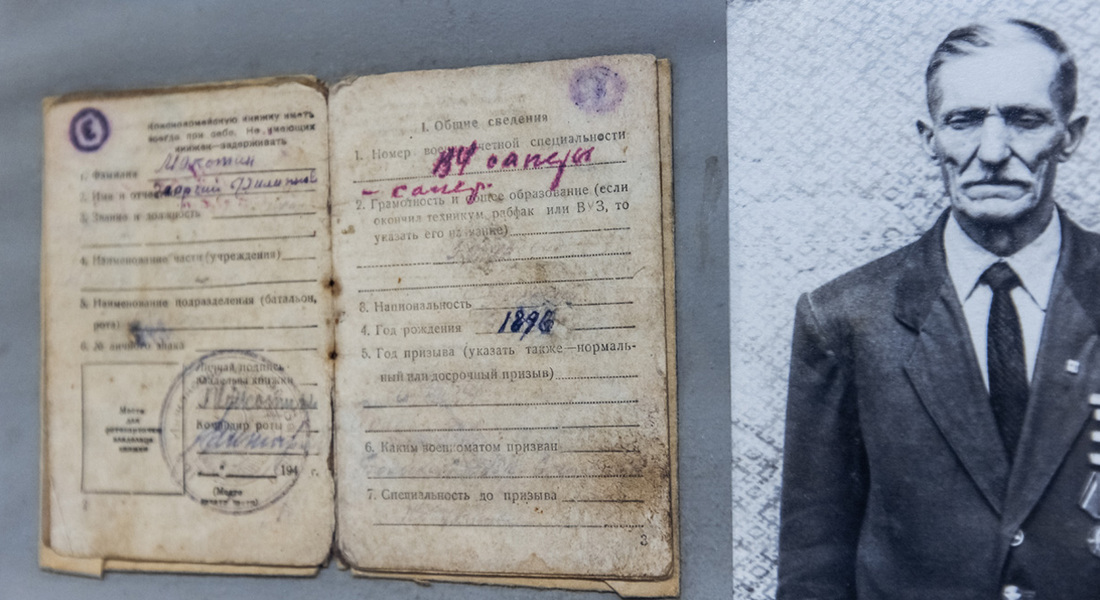 Красноармейскую книжку иметь
всегда при себе. Не имеющих
книжек—задерживать
1. Фамилия Макотин
2. Имя и отчество Георгий Филиппов
3. Звание и должность
4. Наименование части (учреждения)
5. Наименование подразделения (батальон,
рота)
6. № личного знака
Личная подпись
владельца книжки
Место
для
фотокарточки
владельца
книжки
Командир роты
194 г.
(Место
печати части)
I. Общие сведения
1. Номер военно-учетной специальности
ВУ саперы
– сапер.
2. Грамотность и общее образование (если
окончил техникум, рабфак или ВУЗ, то
указать его название)
3. Национальность
4. Год рождения 1896
5. Год призыва (указать также—нормаль-
ный или досрочный призыв)
6. Каким военкоматом призван
7. Специальность до призыва
3